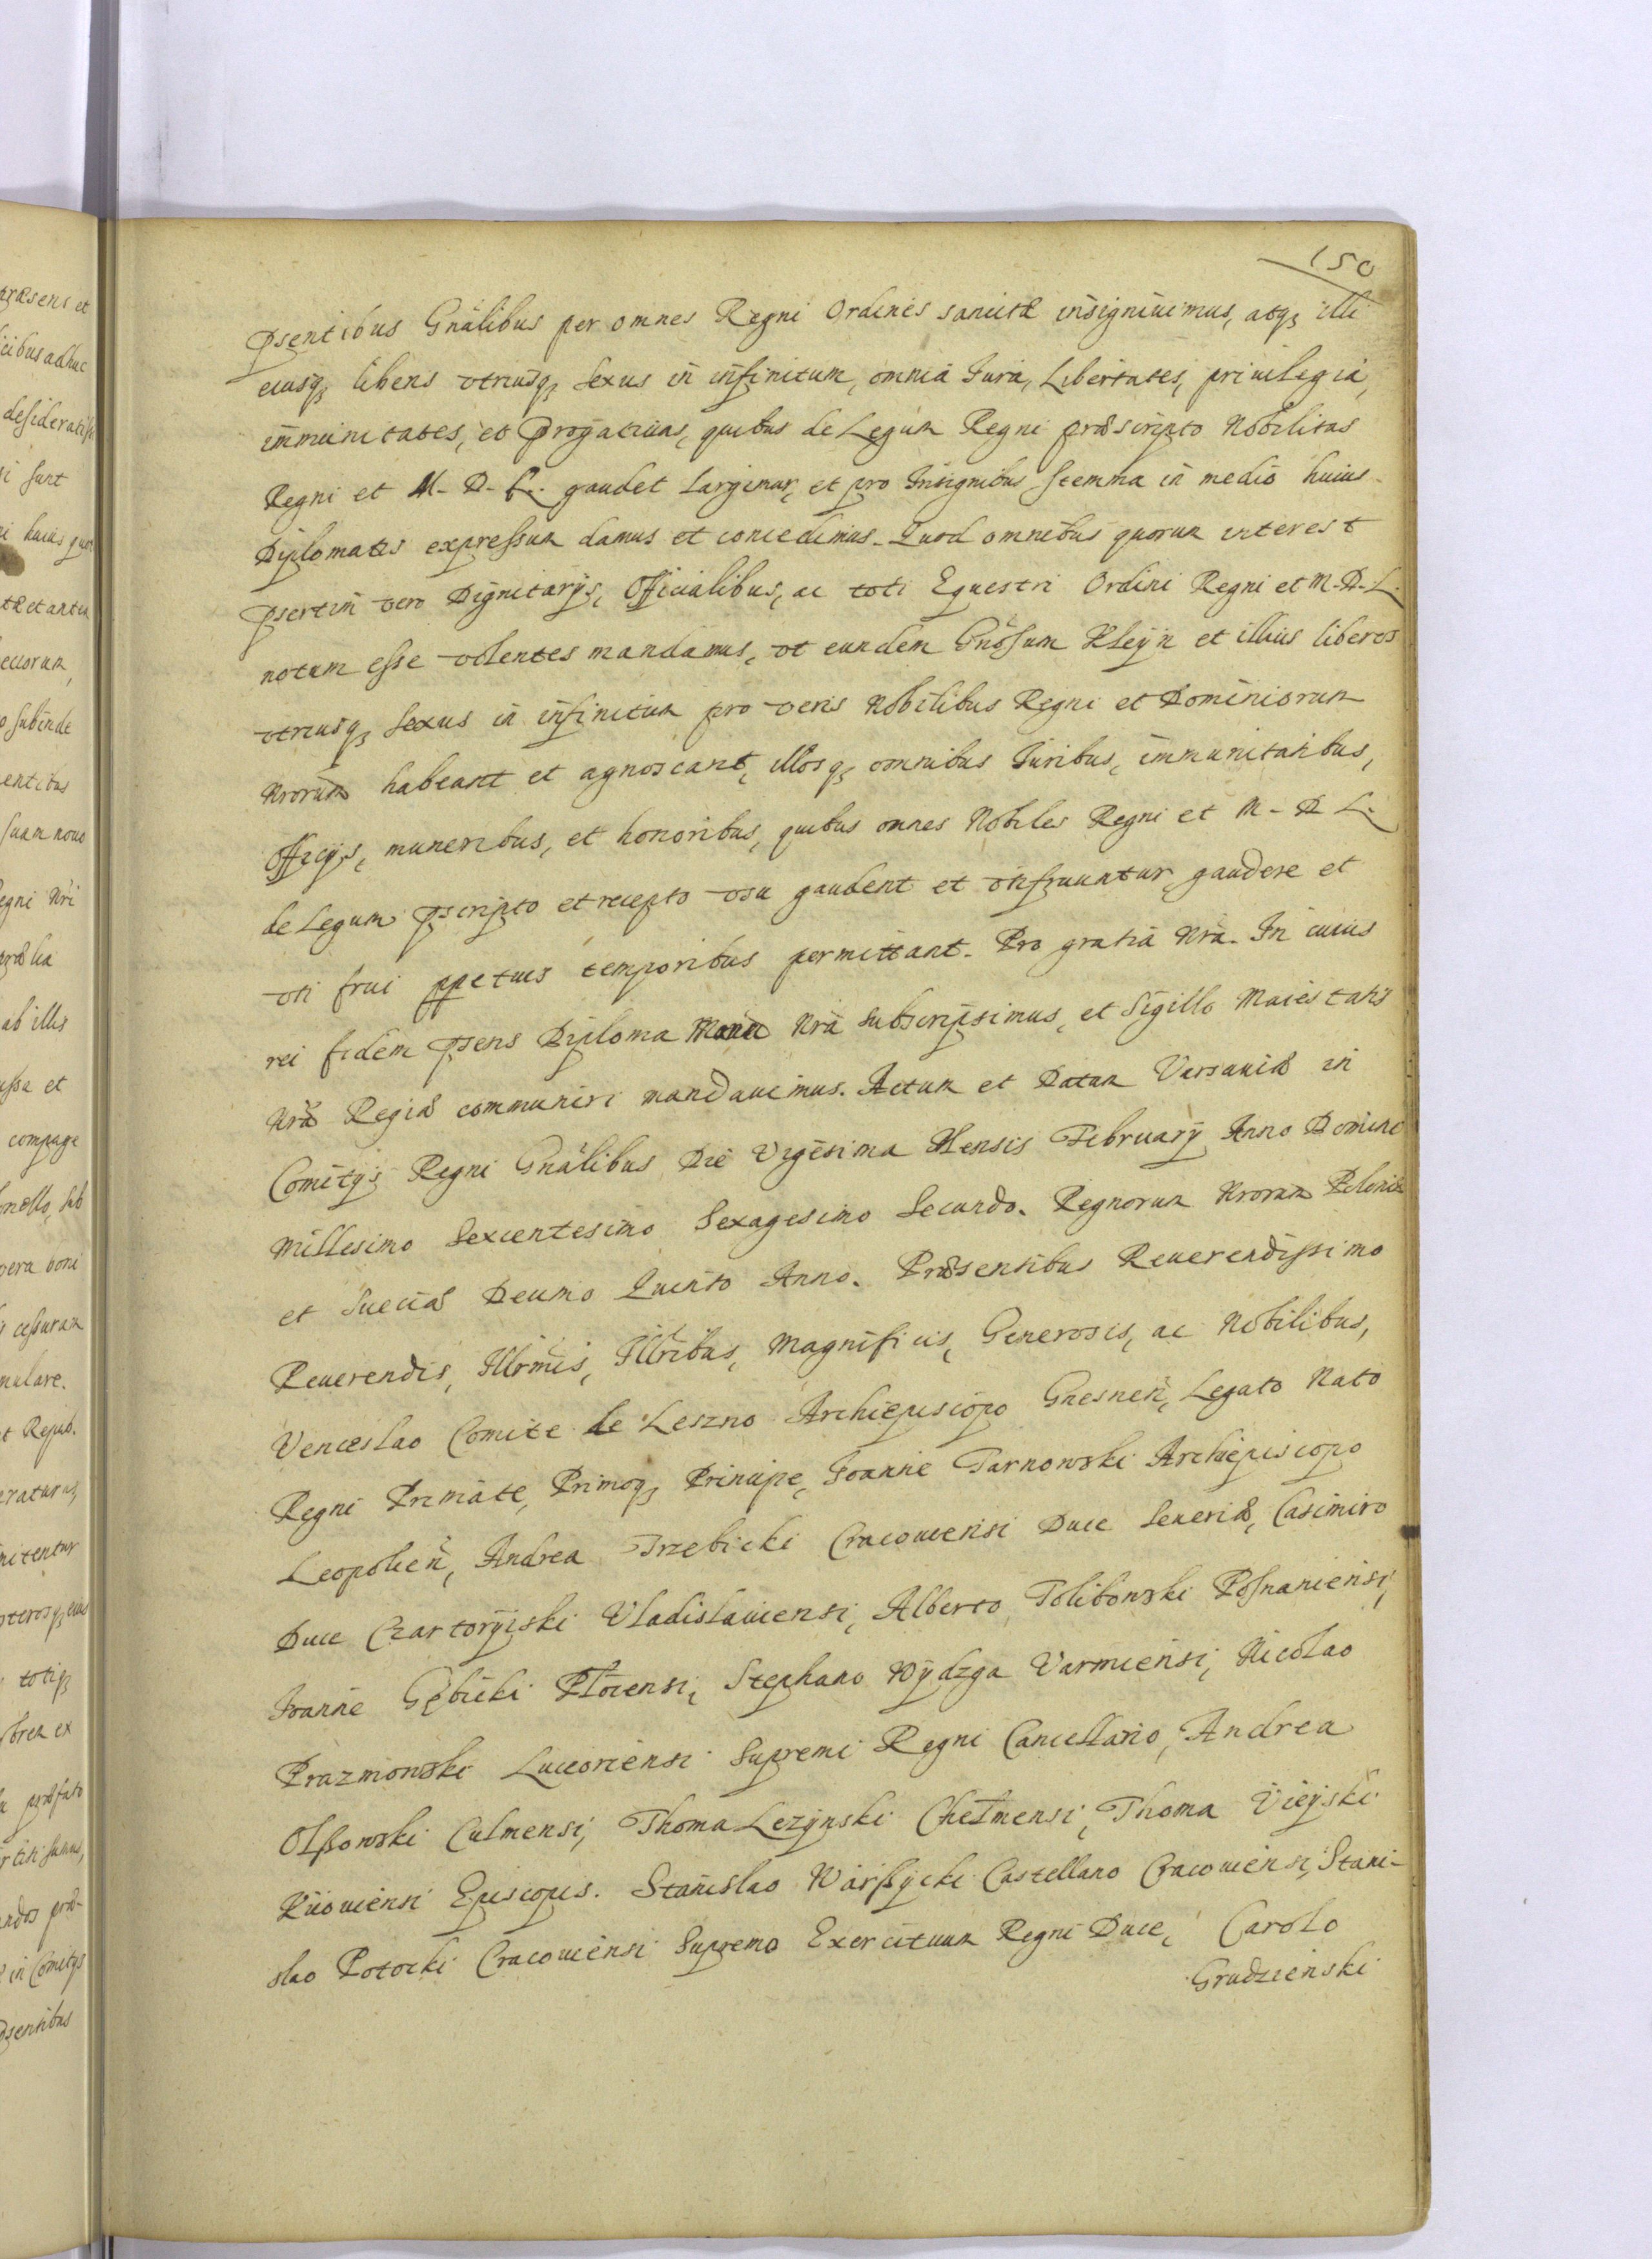 150
psentibus Gnalibus per omnes Regni Ordines sancitæ insigniuimus, atq₃ illi
eiusq₃ libens vtriusq₃ sexus in infinitum, omnia Jura, Libertates, priuilegia,
immunitates, et progatiuas, quibus de Legum Regni præscripto Nobilitas
Regni et M. D. L. gaudet Largimur, et pro Insignibus Stemma in medio huius
Diplomatis expressum damus et concedimus. Quod omnibus quorum interest
psertim vero Dignitarijs, Officialibus, ac toti Equestri Ordini Regni et M. D. L.
notum esse volentes mandamus, vt eundem Gnosum Kleÿn et illius liberos
vtriusq₃ sexus in infinitum pro veris Nobilibus Regni et Dominiorum
Nrorum habeant et agnoscant, illosq₃ omnibus Juribus, immunitatibus,
Officijs, muneribus, et honoribus, quibus omnes Nobiles Regni et M. D. L.
de Legum pscripto et recepto vsu gaudent et vtifruuntur gaudere et
vti frui ppetuis temporibus permittant. Pro gratia Nra. In cuius
rei fidem psens Diploma Manu Nra subscripsimus, et Sigillo Maiestatis
Nræ Regiæ communiri mandauimus. Actum et Datum Varsauiæ in
Comitijs Regni Gnalibus Die Vigesima Mensis Februarij Anno Domini
Millesimo Sexcentesimo Sexagesimo Secundo. Regnorum Nrorum Poloniæ
et Sueciæ Decimo Quinto Anno. Præsentibus Reuerendissimo
Reuerendis, Illrmis, Illribus, Magnificis, Generosis, ac Nobilibus,
Venceslao Comite de Leszno Archiepiscopo Gnesnen, Legato Nato
Regni Primate, Primoq₃ Principe, Joanne Tarnowski Archiepiscopo
Leopolien, Andrea Trzebicki Cracouiensi Duce Seueriæ, Casimiro
Duce Czartorÿiski Vladislauiensi, Alberto Tolibowski Posnaniensi,
Joanne Gębicki Płocensi, Stephano Wÿdzga Varmiensi, Nicolao
Prazmowski Luceoriensi Supremi Regni Cancellario, Andrea
Olszowski Culmensi, Thoma Lezÿnski Chełmensi, Thoma Vieÿski
Kijouiensi Episcopis. Stanislao Warszÿcki Castellano Cracouiensi, Stani-
slao Potocki Cracouiensi Supremo Exercituum Regni Duce, Carolo
Grudzienski